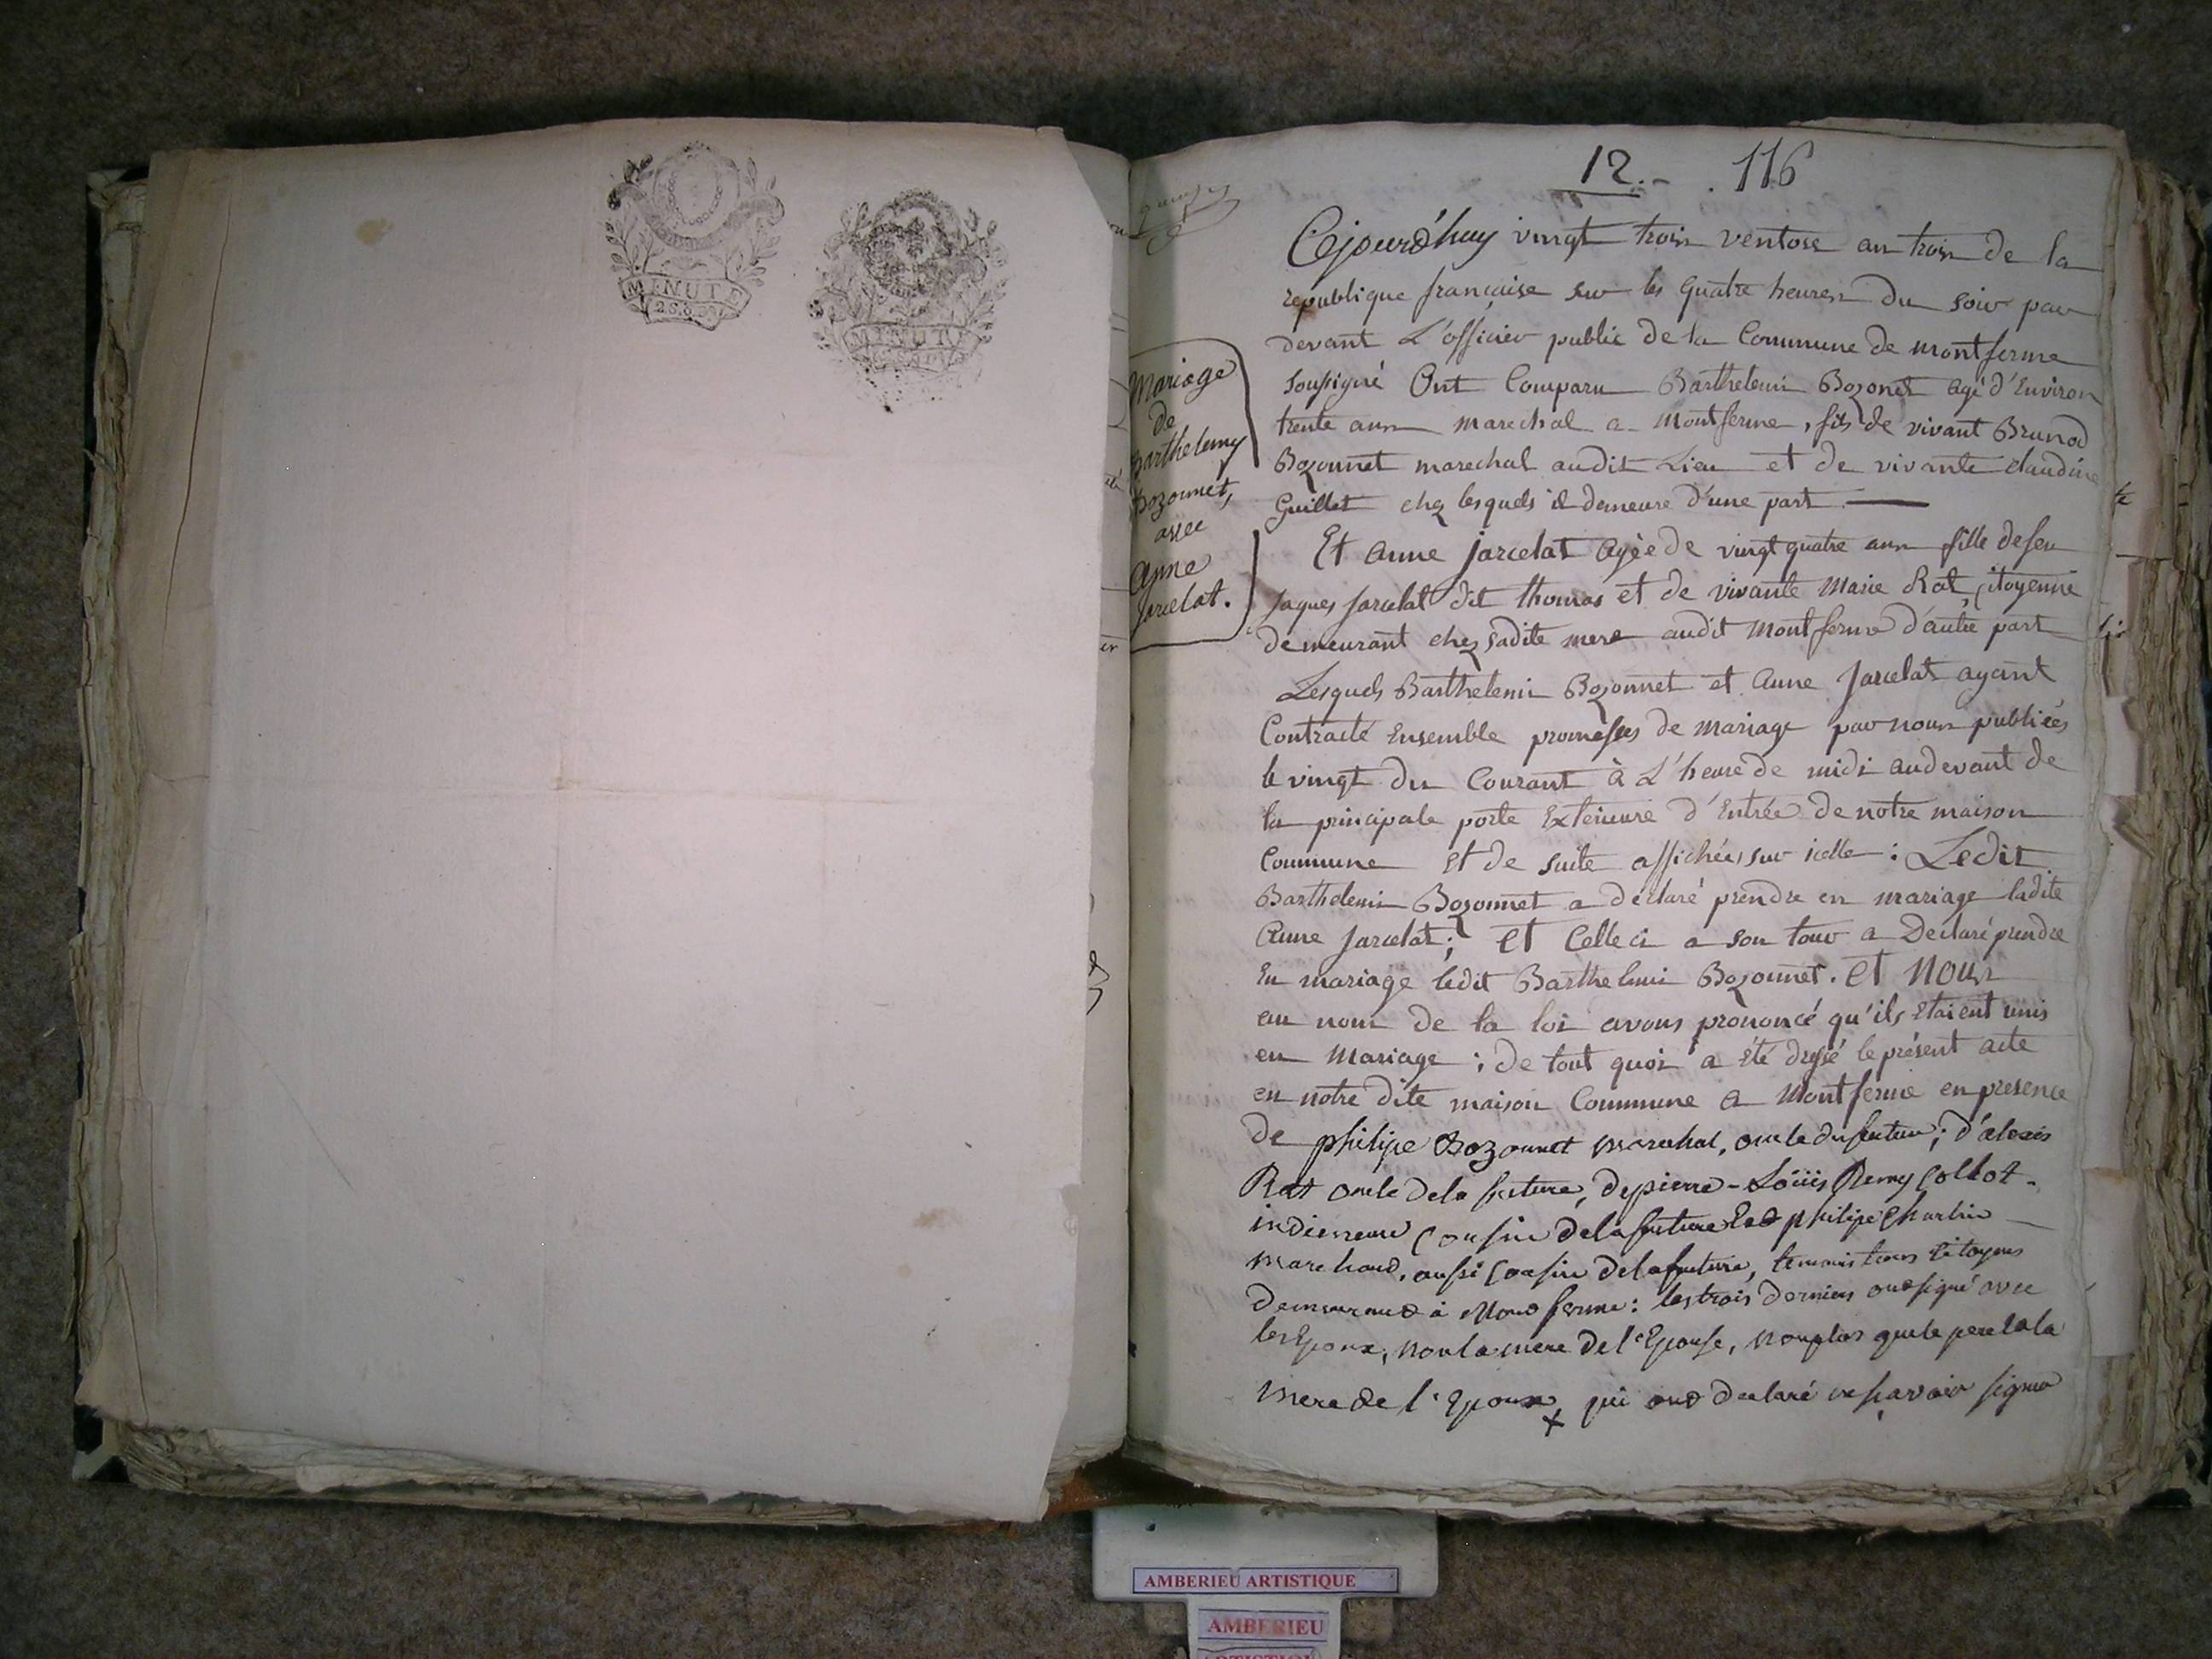 MINUTE
MINUTE
12. - . 116
Mariage
de
Barthelemy
Bozonnet,
avec
Anne
Jarcelat.
Cejourd'huy vingt trois ventose an trois de la
republique française sur les quatre heures du soir par
devant L'officier public de la Commune de montferme
soussigné Ont Comparu Barthelemi Bozonet agé d'Environ
trente ans marechal a Montferme, fils de vivant Brunod
Bozonnet marechal audit Lieu et de vivante claudine
Guillet chez lesquels il demeure d'une part
Et anne jarcelat agée de vingt quatre ans fille de feu
Jaques Jarcelat dit thomas et de vivante Marie Rat, citoyenne
demeurant chez sadite mere audit Montferme d'autre part
Lesquels Barthelemi Bozonnet et Anne Jarcelat ayant
Contracté Ensemble promesses de mariage par nous publiées
le vingt du Courant à L'heure de midi audevant de
la principale porte Exterieure d'Entrée de notre maison
Commune Et de suite affichées sur icelle : Ledit
Barthelemi Bozonnet a déclaré prendre en mariage ladite
Anne Jarcelat; et Celle ci a son tour a Declaré prendre
En mariage ledit Barthelemi Bozonnet. Et Nous
au nom de la loi avons prononcé qu'ils Etaient unis
en Mariage ; de tout quoi a été dressé le présent acte
en notre dite maison Commune a Montferme en presence
de philipe Bozonnet marechal, oncle du futur; d'alexis
Rat oncle dela future, de pierre-Loüis Remy Collot-
indienneur Cousin dela future Et philipe Charlin
marchand, aussi Cousin dela future, temoins tous Citoyens
demeurant à Montferme : les trois derniers ont signé avec
les Epoux, non la mere de l'Epouse, non plus que le pere & la
mere de l'Epoux, qui ont declaré ne savoir signer
AMBERIEU ARTISTIQUE
AMBERIEU
ARTISTIQUE